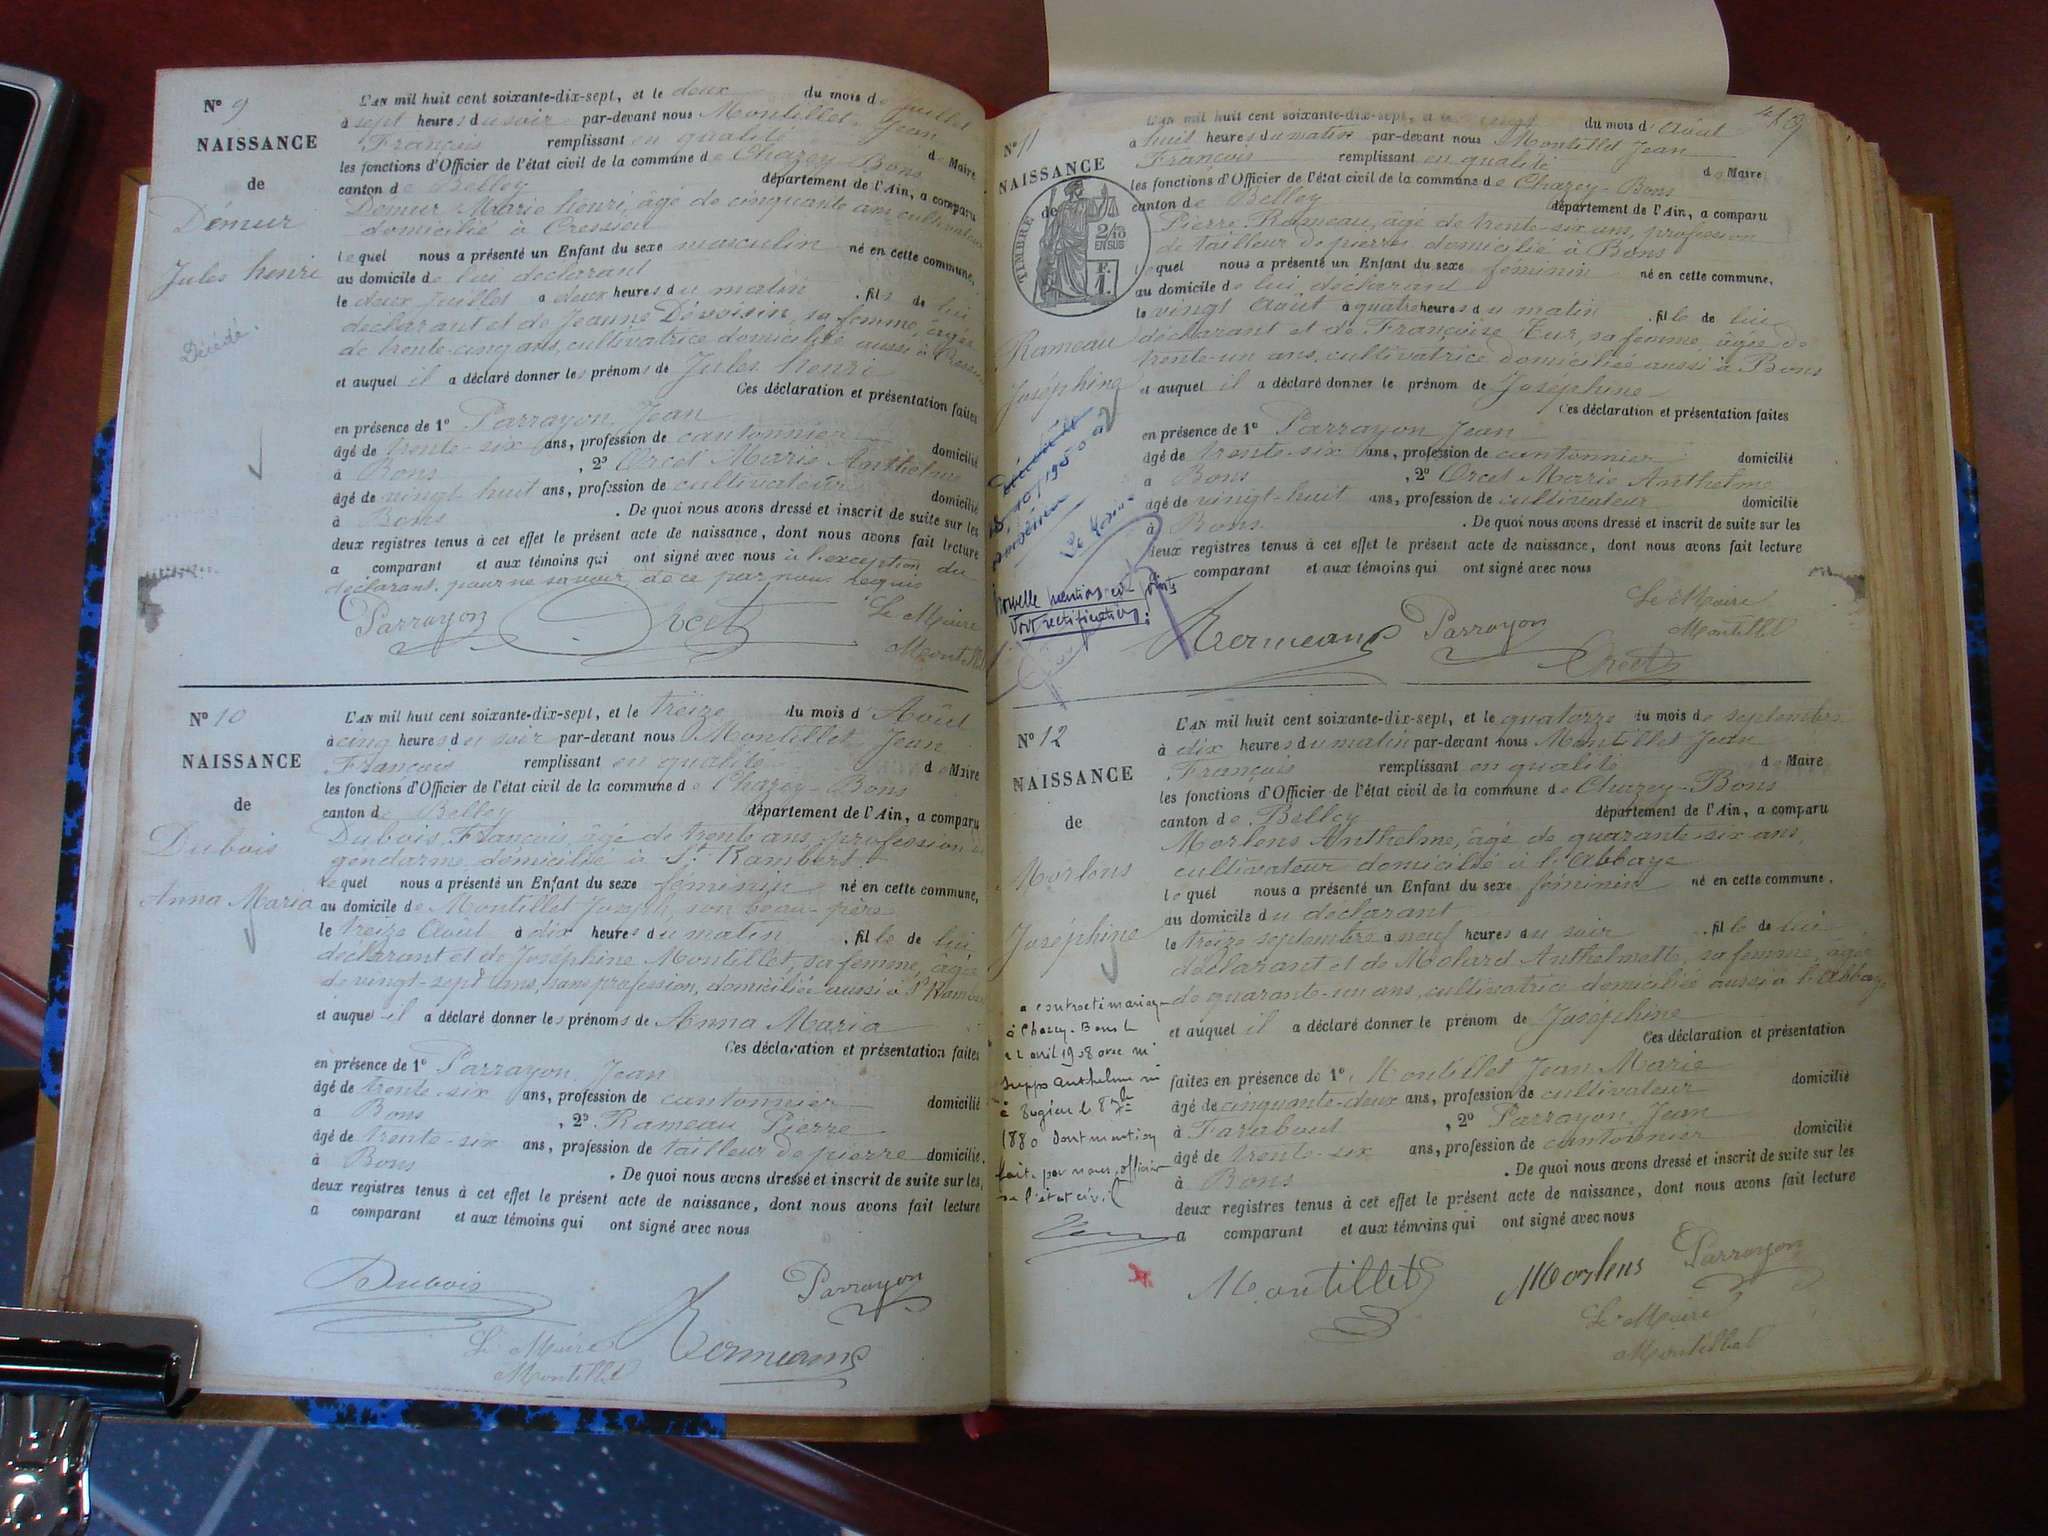 N° 9
NAISSANCE
de
Démur
Jules henri
Décédé.
L'AN mil huit cent soixante-dix-sept, et le deux du mois de Juillet
à sept heures du soir par-devant nous Montillet Jean
François remplissant en qualité de Maire
les fonctions d'Officier de l'état civil de la commune de Chazey-Bons
canton de Belley département de l'Ain, a comparu
Démur Marie henri, âgé de cinquante ans, cultivateur
domicilié à Cressieu
lequel nous a présenté un Enfant du sexe masculin né en cette commune,
au domicile de lui déclarant
le deux Juillet à deux heures du matin, fils de lui
déclarant et de Jeanne Dévoisin, sa femme, âgée
de trente-cinq ans, cultivatrice domiciliée aussi à Cressieu
et auquel il a déclaré donner les prénoms de Jules henri
Ces déclaration et présentation faites
en présence de 1° Parrayon Jean
âgé de trente-six ans, profession de cantonnier domicilié
à Bons, 2° Orcet Marie Anthelme
âgé de vingt-huit ans, profession de cultivateur domicilié
à Bons. De quoi nous avons dressé et inscrit de suite sur les
deux registres tenus à cet effet le présent acte de naissance, dont nous avons fait lecture
a comparant et aux témoins qui ont signé avec nous à l'exception du
déclarant, pour ne savoir, de ce par nous requis
Parrayon Orcet Le Maire
Montillet
N° 10
NAISSANCE
de
Dubois
Anna Maria
L'AN mil huit cent soixante-dix-sept, et le treize du mois d'Août
à cinq heures du soir par-devant nous Montillet Jean
François remplissant en qualité de Maire
les fonctions d'Officier de l'état civil de la commune de Chazey-Bons
canton de Belley département de l'Ain, a comparu
Dubois François, âgé de trente ans, profession de
gendarme, domicilié à St Rambert
lequel nous a présenté un Enfant du sexe féminin né en cette commune,
au domicile de Montillet Joseph, son beau-père
le treize Août à dix heures du matin, fille de lui
déclarant et de Joséphine Montillet, sa femme, âgée
de vingt-sept ans, sans profession, domiciliée aussi à St Rambert
et auquel il a déclaré donner les prénoms de Anna Maria
Ces déclaration et présentation faites
en présence de 1° Parrayon Jean
âgé de trente-six ans, profession de cantonnier domicilié
à Bons, 2° Rameau Pierre
âgé de trente-six ans, profession de tailleur de pierre domicilié.
à Bons. De quoi nous avons dressé et inscrit de suite sur les
deux registres tenus à cet effet le présent acte de naissance, dont nous avons fait lecture
a comparant et aux témoins qui ont signé avec nous
Dubois Parrayon
Le Maire
Montillet
N° 11
NAISSANCE
de
TIMBRE
2/10
EN SUS
F.
1.
Rameau
Joséphine
décédée
Le Maire
Nouvelle mention ci-
Vort rectification:
L'AN mil huit cent soixante-dix-sept, et le vingt du mois d'Août
à huit heures du matin par-devant nous Montillet Jean
François remplissant en qualité de Maire
les fonctions d'Officier de l'état civil de la commune de Chazey-Bons
canton de Belley département de l'Ain, a comparu
Pierre Rameau, âgé de trente-six ans, profession
de tailleur de pierres domicilié à Bons
lequel nous a présenté un Enfant du sexe féminin né en cette commune,
au domicile de lui déclarant
le vingt Août à quatre heures du matin, fille de lui
déclarant et de Françoise Tur, sa femme, âgée de
trente-un ans, cultivatrice domiciliée aussi à Bons
et auquel il a déclaré donner le prénom de Joséphine
Ces déclaration et présentation faites
en présence de 1° Parrayon Jean
âgé de trente-six ans, profession de cantonnier domicilié
à Bons, 2° Orcet Marie Anthelme
âgé de vingt-huit ans, profession de cultivateur domicilié
à Bons. De quoi nous avons dressé et inscrit de suite sur les
deux registres tenus à cet effet le présent acte de naissance, dont nous avons fait lecture
comparant et aux témoins qui ont signé avec nous
Parrayon Le Maire
Orcet Montillet
N° 12
NAISSANCE
de
Morlens
Joséphine
a contracté mariage
à Chazey-Bons le
avril 1908 avec
Suppo Anthelme né
à Bugieu le 8
1880 dont mention
faite par nous, officier
de l'état civil
L'AN mil huit cent soixante-dix-sept, et le quatorze du mois de septembre
à dix heures du matin par-devant nous Montillet Jean
François remplissant en qualité de Maire
les fonctions d'Officier de l'état civil de la commune de Chazey-Bons
canton de Belley département de l'Ain, a comparu
Morlens Anthelme, âgé de quarante-six ans,
cultivateur domicilié à l'Abbaye
lequel nous a présenté un Enfant du sexe féminin né en cette commune.
au domicile du déclarant
le treize septembre à neuf heures du soir, fille de lui
déclarant et de Molard Anthelmette, sa femme, âgée
de quarante-un ans, cultivatrice domiciliée aussi à l'Abbaye
et auquel il a déclaré donner le prénom de Joséphine
Ces déclaration et présentation
faites en présence de 1° Montillet Jean Marie
âgé de cinquante-deux ans, profession de cultivateur domicilié
à Farabout, 2° Parrayon Jean
âgé de trente-six ans, profession de cantonnier domicilié
à Bons. De quoi nous avons dressé et inscrit de suite sur les
deux registres tenus à cet effet le présent acte de naissance, dont nous avons fait lecture
a comparant et aux témoins qui ont signé avec nous
Montillet Morlens Parrayon
Le Maire
Montillet